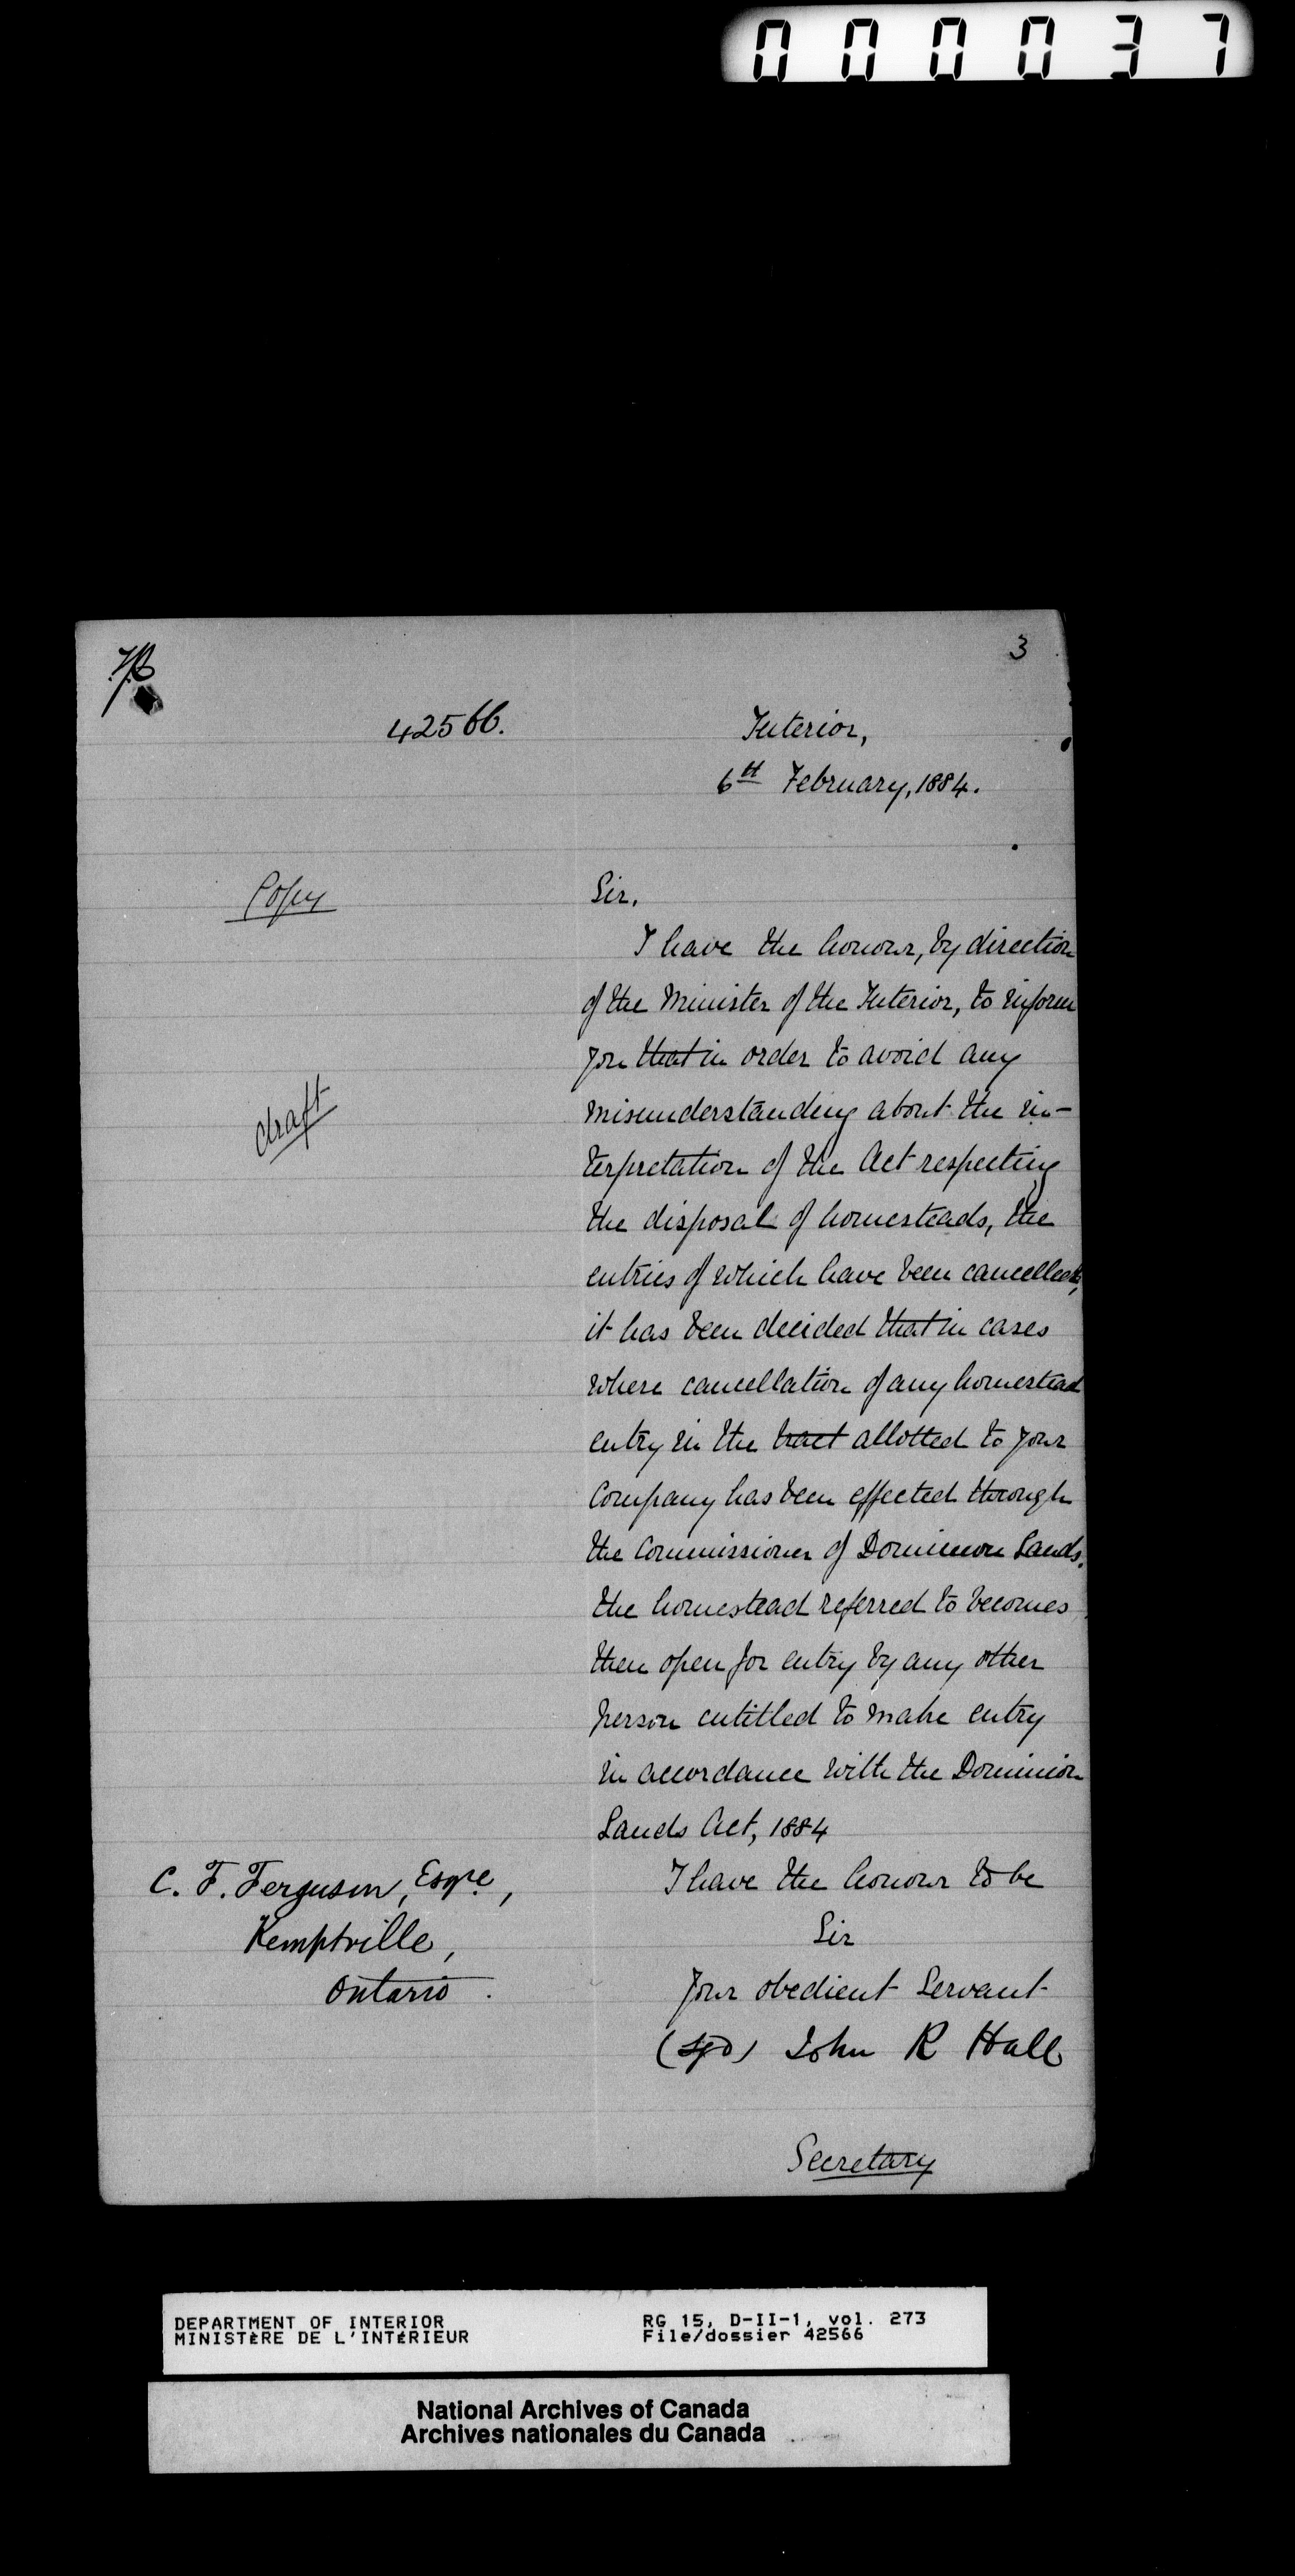 000037
3
42566.
Interior,
6th February, 1884.
Copy
Sir,
I have the honour, by direction
of the Minister of the Interior, to inform
you that in order to avoid any
draft
misunderstanding about the in-
terpretation of the Act respecting
the disposal of homesteads, the
entries of which have been cancelled,
it has been decided that in cases
where cancellation of any homestead
entry in the tract allotted to your
Company has been effected through
the Commissioner of Dominion Lands.
the homestead referred to becomes
then open for entry by any other
person entitled to make entry
in accordance with the Dominion
Lands Act, 1884
C. F. Ferguson, Esqre,
Kemptville,
Ontario.
I have the honour to be
Sir
Your obedient Servant
(sgd) John R Hall
Secretary
DEPARTMENT OF INTERIOR
MINISTÈRE DE L'INTÉRIEUR
RG 15, D-II-1, vol. 273
File/dossier 42566
National Archives of Canada
Archives nationales du Canada